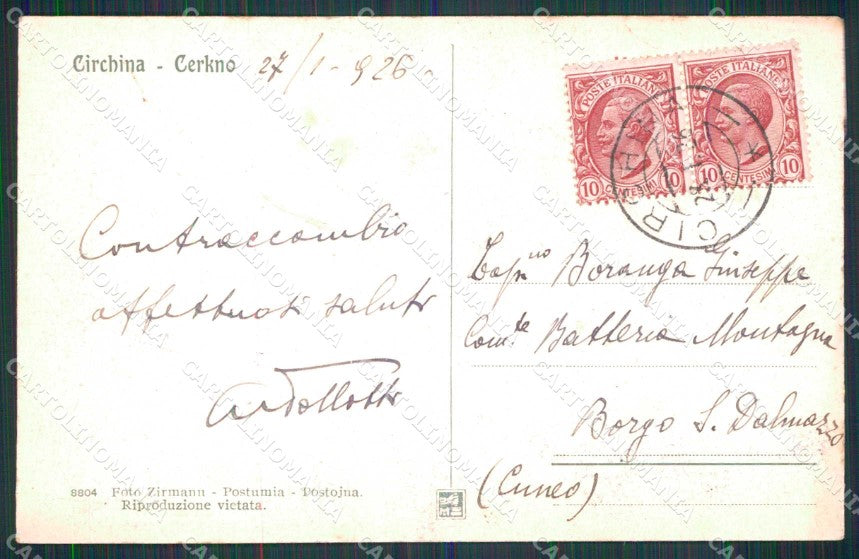 Circhina - Cerkno 27/1-926
POSTE ITALIANE
10 CENTESIMI 10
POSTE ITALIANE
10 CENTESIMI 10
Contraccambio
affettuosi saluti
Cap.no Boranga Giuseppe
Com.te Batteria Montagna
Borgo S. Dalmazzo
(Cuneo)
8804 Foto Zirmann - Postumia - Postojna.
Riproduzione vietata.
CARTOLINOMANIA